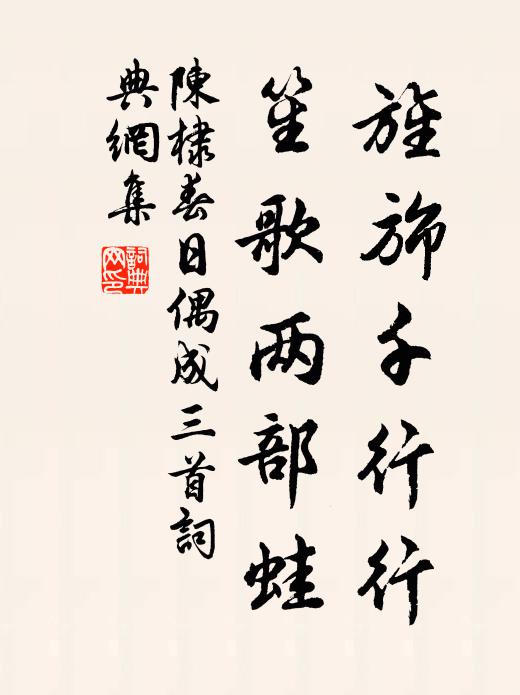 旌旆千行行
笙歌两部蛙
陳棣春日偶成三首詞
典網集
詞典
网印